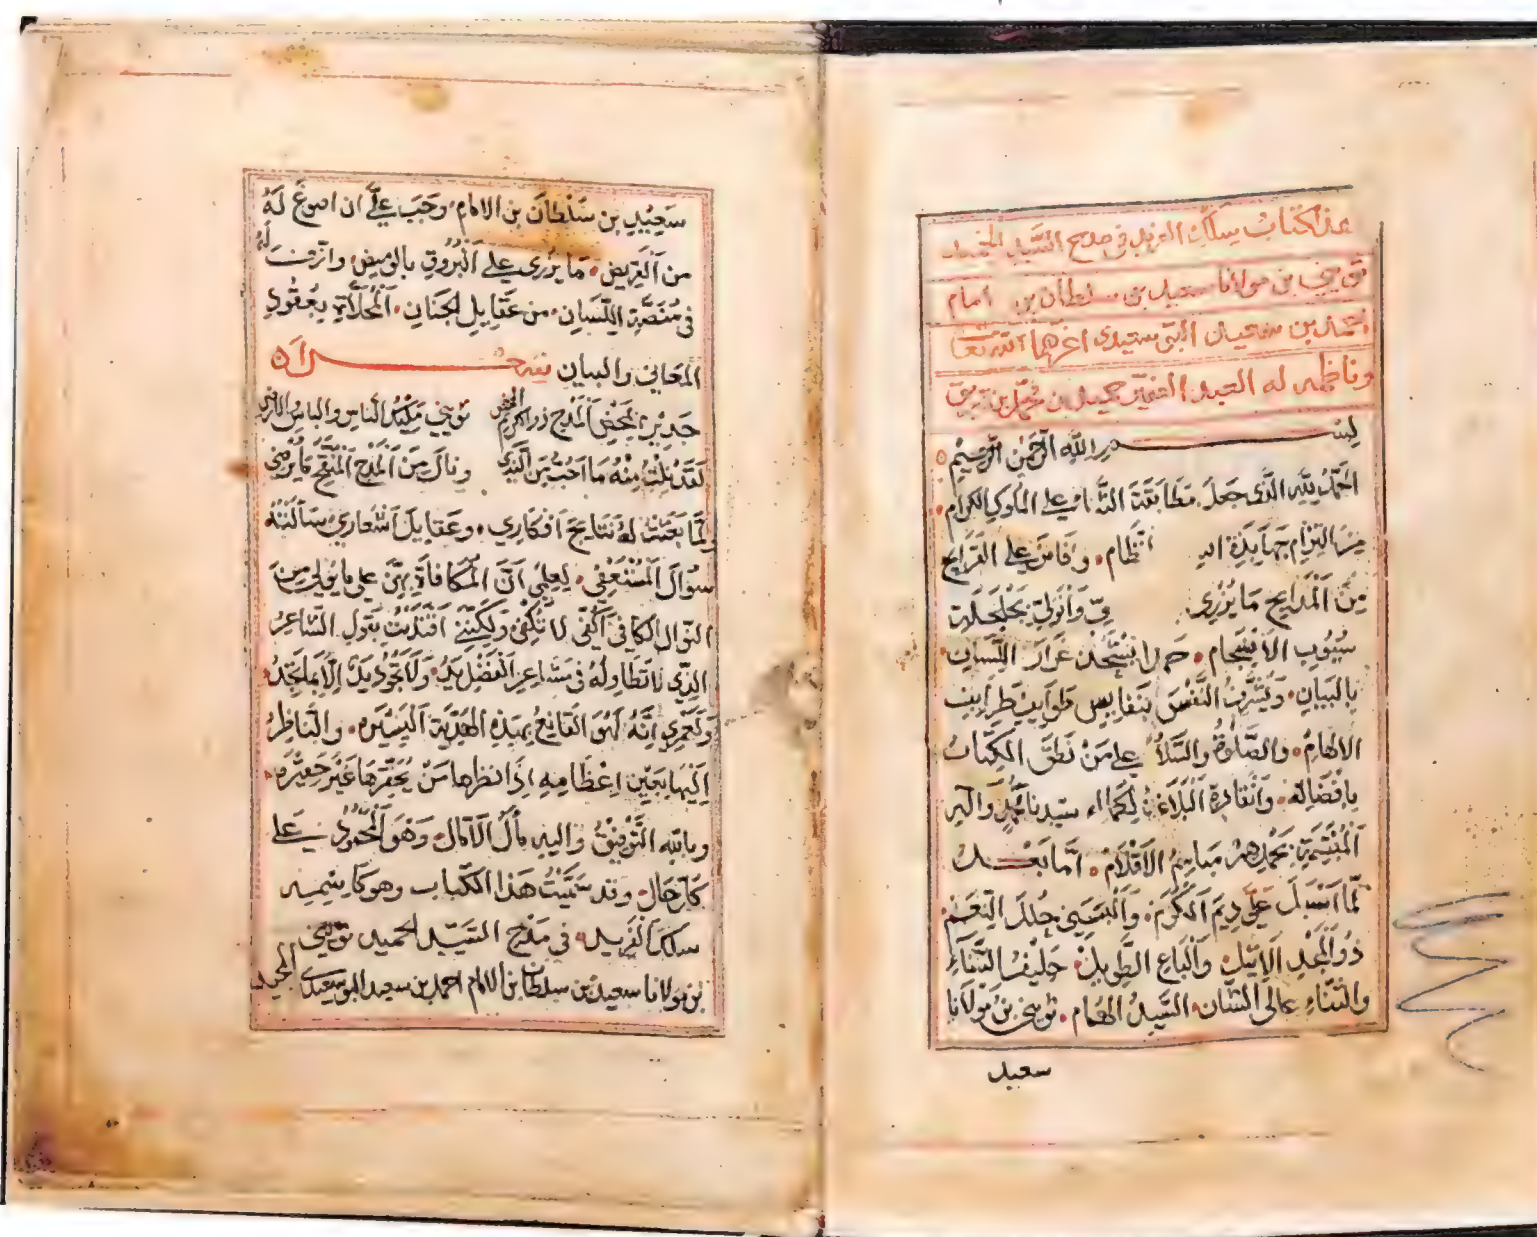 هذا كتاب سلك الفريد في مدح السيد
ثويني بن مولانا سعيد بن سلطان بن امام
احمد بن سعيد البوسعيدي
وناظمه له العبد الفقير حميد بن محمد بن رزيق
بسم الله الرحمن الرحيم
الحمد لله الذي جعل مطابقة الثناء على الملوك الكرام
من التزام جهابذة نظام وافاض على القرايح
من المدايح ما يزري
سيوب الانسجام حمدا نستحد غرار اللسان
بالبيان ونشرف النفس بنفايس طرايف
الالهام والصلوة والسلام على من نطق الكتاب
بافضاله البلاغة سيدنا محمد واله
المبتسمة بحمدهم مباسم الاقلام اما بعد
لما اسبل علي ديم الكرم والبسني حلل النعم
ذو المجد الاثيل والباع الطويل حليف الثناء
والثناء عالي الشان السيد الهمام ثويني بن مولانا
سعيد
سعيد بن سلطان بن الامام وجب علي ان اصوغ له
من القريض ما يزري على البروق بالوميض وازف له
في منصة اللسان من عقايل الجنان المحلاة بعقود
المعاني والبيان
جدير بمحض المدح ذو الكرم المحض ثويني مليك الناس والباس والارض
لقد نلت منه ما احب من الندى ونال من المدح المنقح ما يرضي
ولما بعثت له نتايج افكاري وعقايل اشعاري سالته
سوال المستعفي لعلمي ان المكافاة مني على ما يولي من
النوال الكافي اكفى لا تكفي ولكنني اقتديت بقول الشاعر
الذي لا تطاوله في مشاعر الفضل يد ولا تجود يد الا بما تجد
ولعمري انه لهو القانع بهذه الهدية اليسيره والناظر
اليها بعين اعظامه اذا نظرها من يحقرها غير حقيره
وبالله التوفيق واليه مآل الآمال وهو المحمود على
كل حال وقد سميت هذا الكتاب وهو كاسميه
سلك الفريد في مدح السيد الحميد ثويني المجيد
بن مولانا سعيد بن سلطان بن الامام احمد بن سعيد البوسعيدي